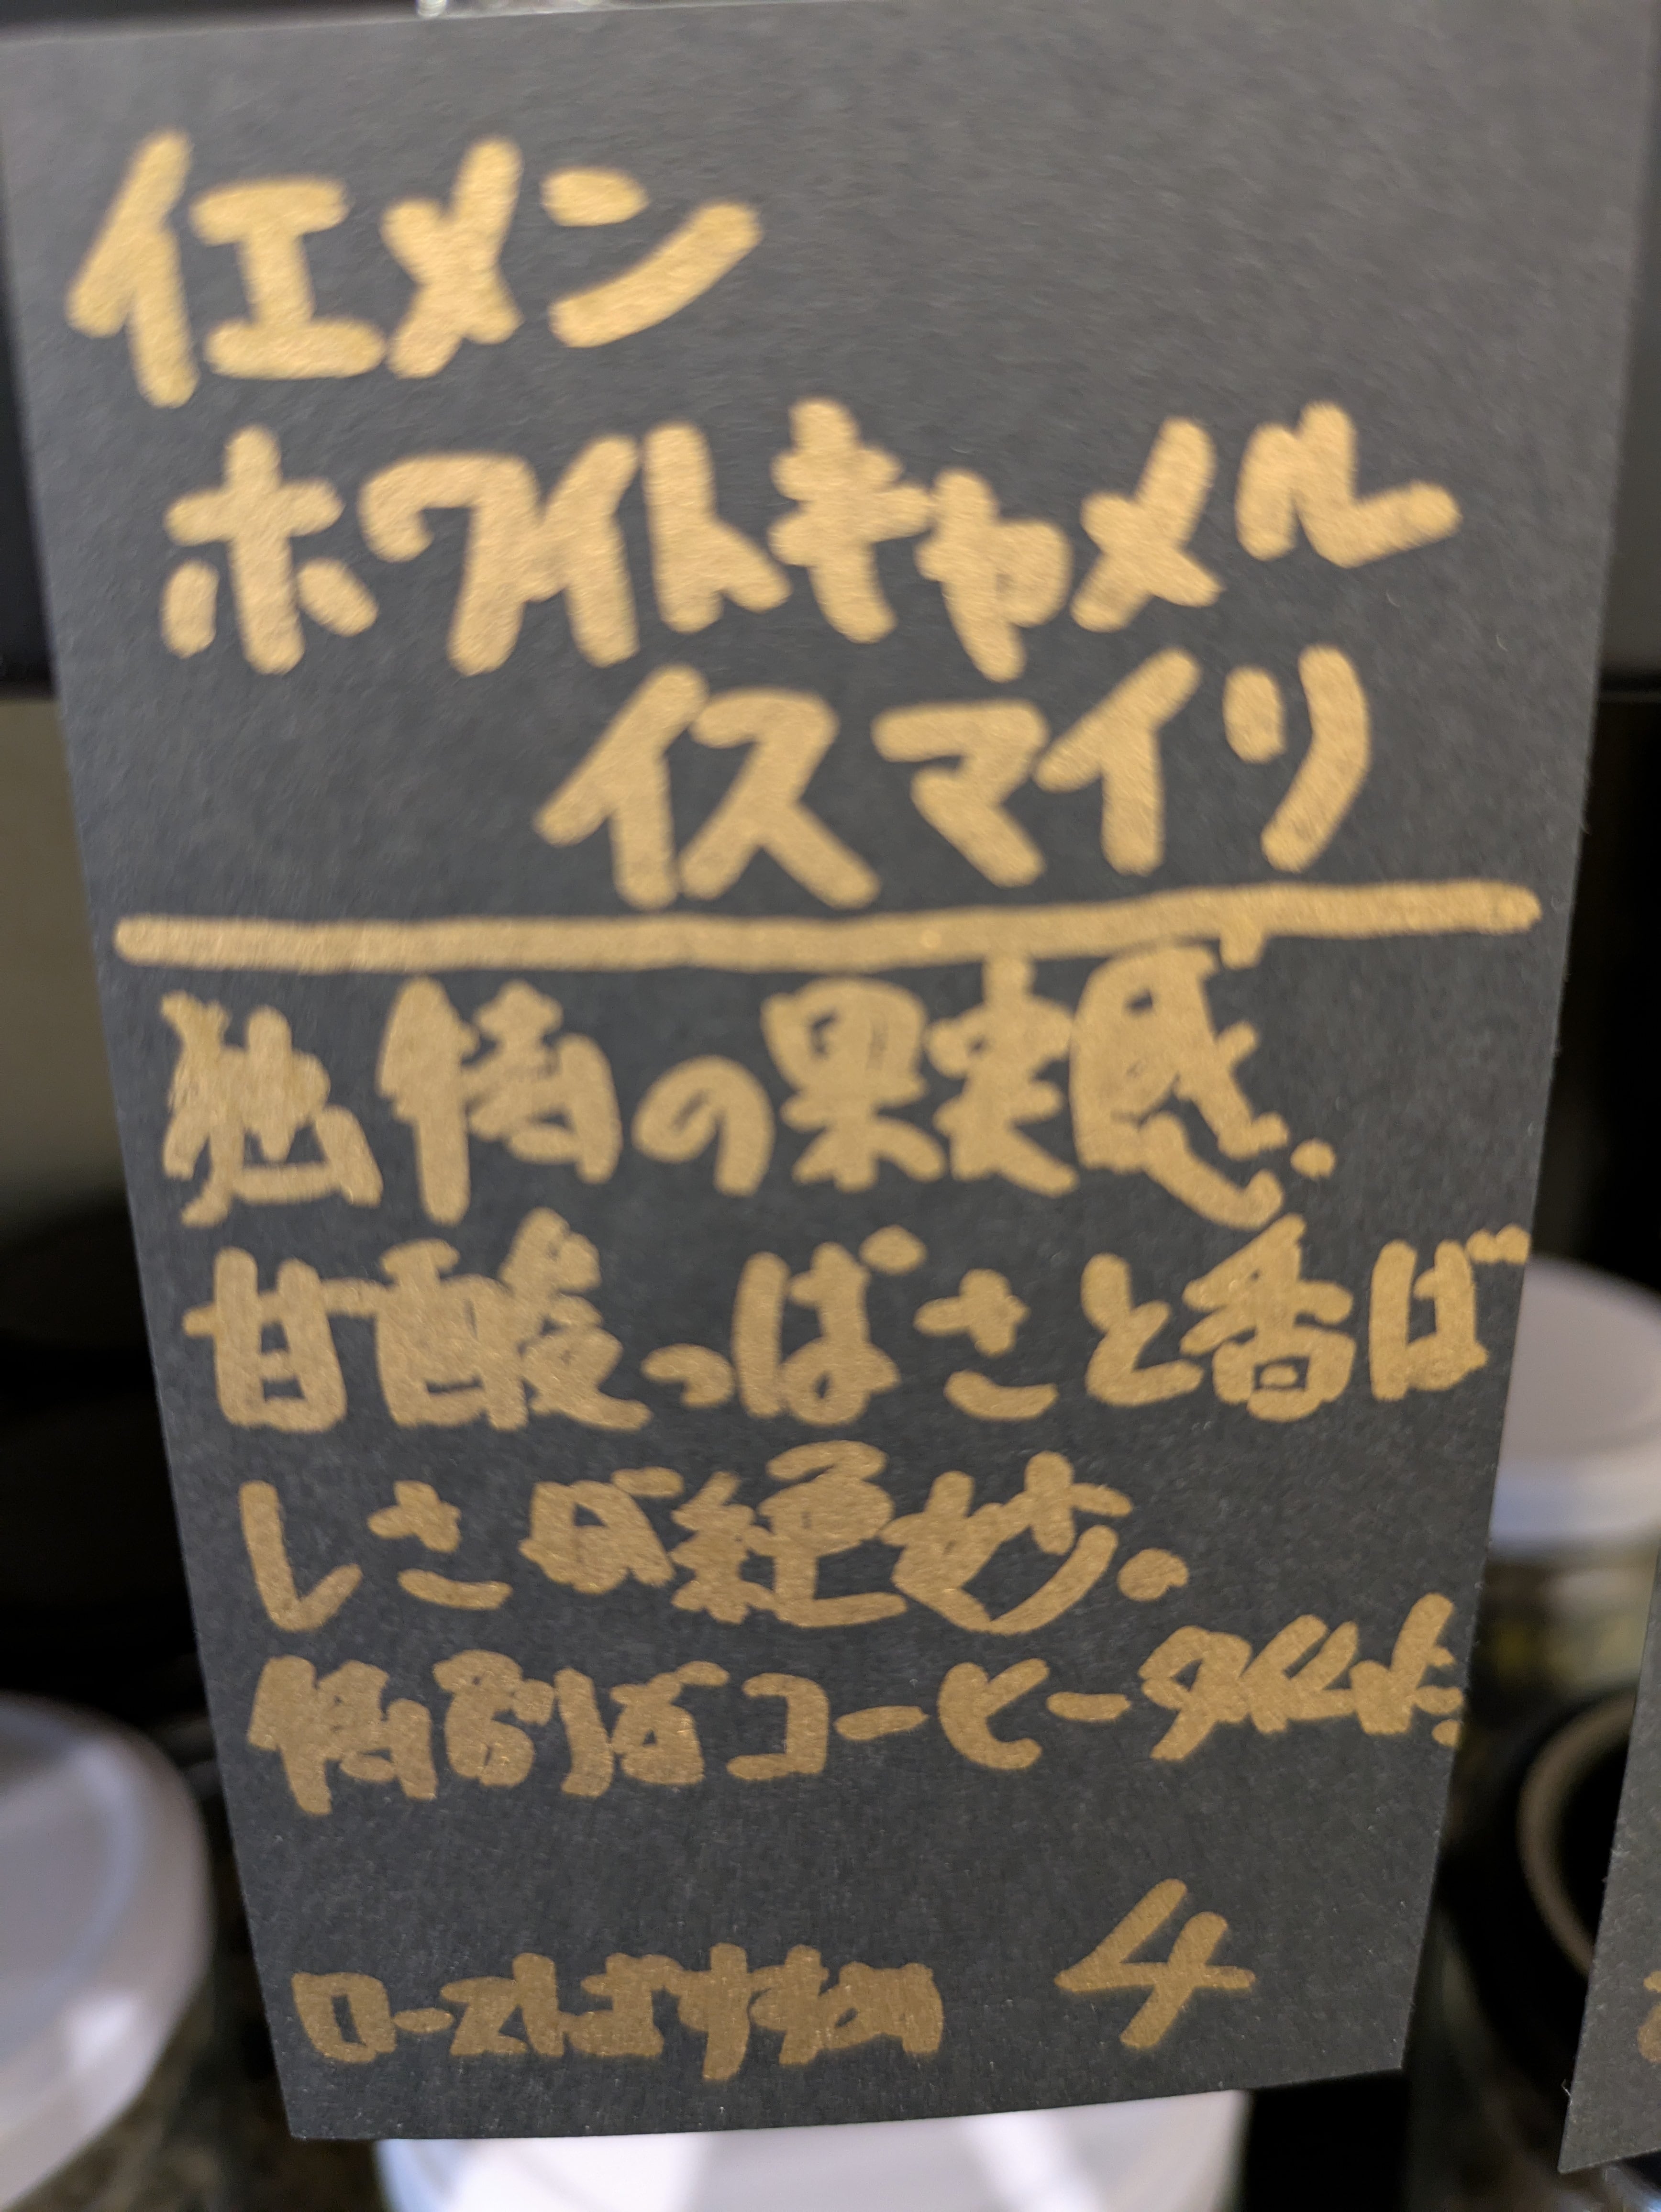 イエメン
ホワイトキャメル
イスマイリ
独特の果実感.
甘酸っぱさと香ば
しさが絶妙。
コーヒー
ロースト 4